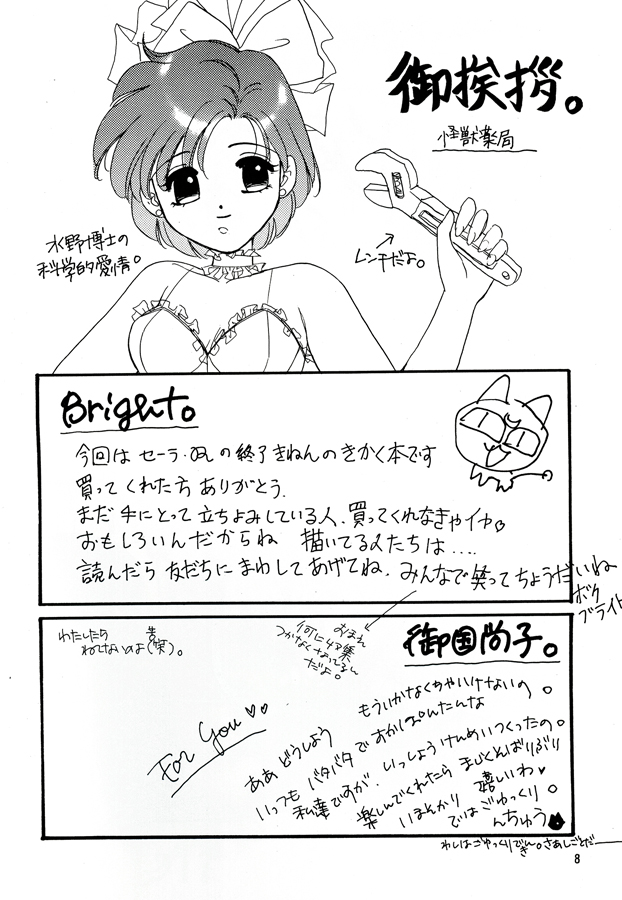 御挨拶。
怪獣薬局
水野博士の
科学的愛情。
レンチだよ。
Bright。
今回は セーラ・OLの終了きねんのきかく本です
買ってくれた方 ありがとう.
まだ手にとって立ちよみしている人、買ってくれなきゃイヤ♡
おもしろいんだからね 描いてる人たちは....
読んだら 友だちに まわしてあげてね. みんなで笑ってちょうだいね
ボク
ブライト
御国尚子。
わたしたち
ねてないのよ(笑)。
つかなくなってるし
だよ。
For you ♡♡
もういかなくちゃいけないの。
ああ どうしよう
いつも バタバタで
私達ですが、いっしょうけんめいつくったの。
楽しんでくれたら
嬉しいわ♥
ではごゆっくり。
んちゅう
わしはごゆっくりできん。さあしごとだー
8